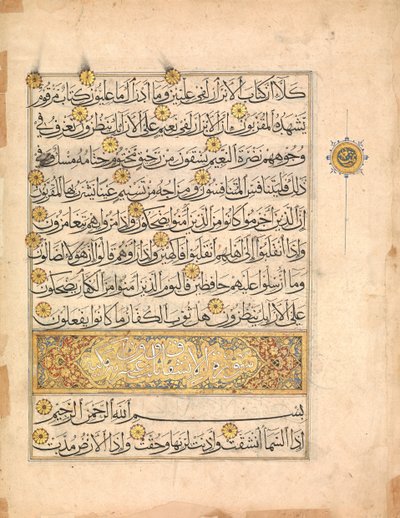 كَلَّا إِنَّ كِتَابَ الْأَبْرَارِ لَفِي عِلِّيِّينَ وَمَا أَدْرَاكَ مَا عِلِّيُّونَ كِتَابٌ مَرْقُومٌ
يَشْهَدُهُ الْمُقَرَّبُونَ إِنَّ الْأَبْرَارَ لَفِي نَعِيمٍ عَلَى الْأَرَائِكِ يَنْظُرُونَ تَعْرِفُ فِي
وُجُوهِهِمْ نَضْرَةَ النَّعِيمِ يُسْقَوْنَ مِنْ رَحِيقٍ مَخْتُومٍ خِتَامُهُ مِسْكٌ وَفِي
ذَلِكَ فَلْيَتَنَافَسِ الْمُتَنَافِسُونَ وَمِزَاجُهُ مِنْ تَسْنِيمٍ عَيْنًا يَشْرَبُ بِهَا الْمُقَرَّبُونَ
إِنَّ الَّذِينَ أَجْرَمُوا كَانُوا مِنَ الَّذِينَ آمَنُوا يَضْحَكُونَ وَإِذَا مَرُّوا بِهِمْ يَتَغَامَزُونَ
وَإِذَا انْقَلَبُوا إِلَى أَهْلِهِمُ انْقَلَبُوا فَاكِهِينَ وَإِذَا رَأَوْهُمْ قَالُوا إِنَّ هَؤُلَاءِ لَضَالُّونَ
وَمَا أُرْسِلُوا عَلَيْهِمْ حَافِظِينَ فَالْيَوْمَ الَّذِينَ آمَنُوا مِنَ الْكُفَّارِ يَضْحَكُونَ
عَلَى الْأَرَائِكِ يَنْظُرُونَ هَلْ ثُوِّبَ الْكُفَّارُ مَا كَانُوا يَفْعَلُونَ
سورة الانشقاق
بِسْمِ اللَّهِ الرَّحْمَنِ الرَّحِيمِ
إِذَا السَّمَاءُ انْشَقَّتْ وَأَذِنَتْ لِرَبِّهَا وَحُقَّتْ وَإِذَا الْأَرْضُ مُدَّتْ